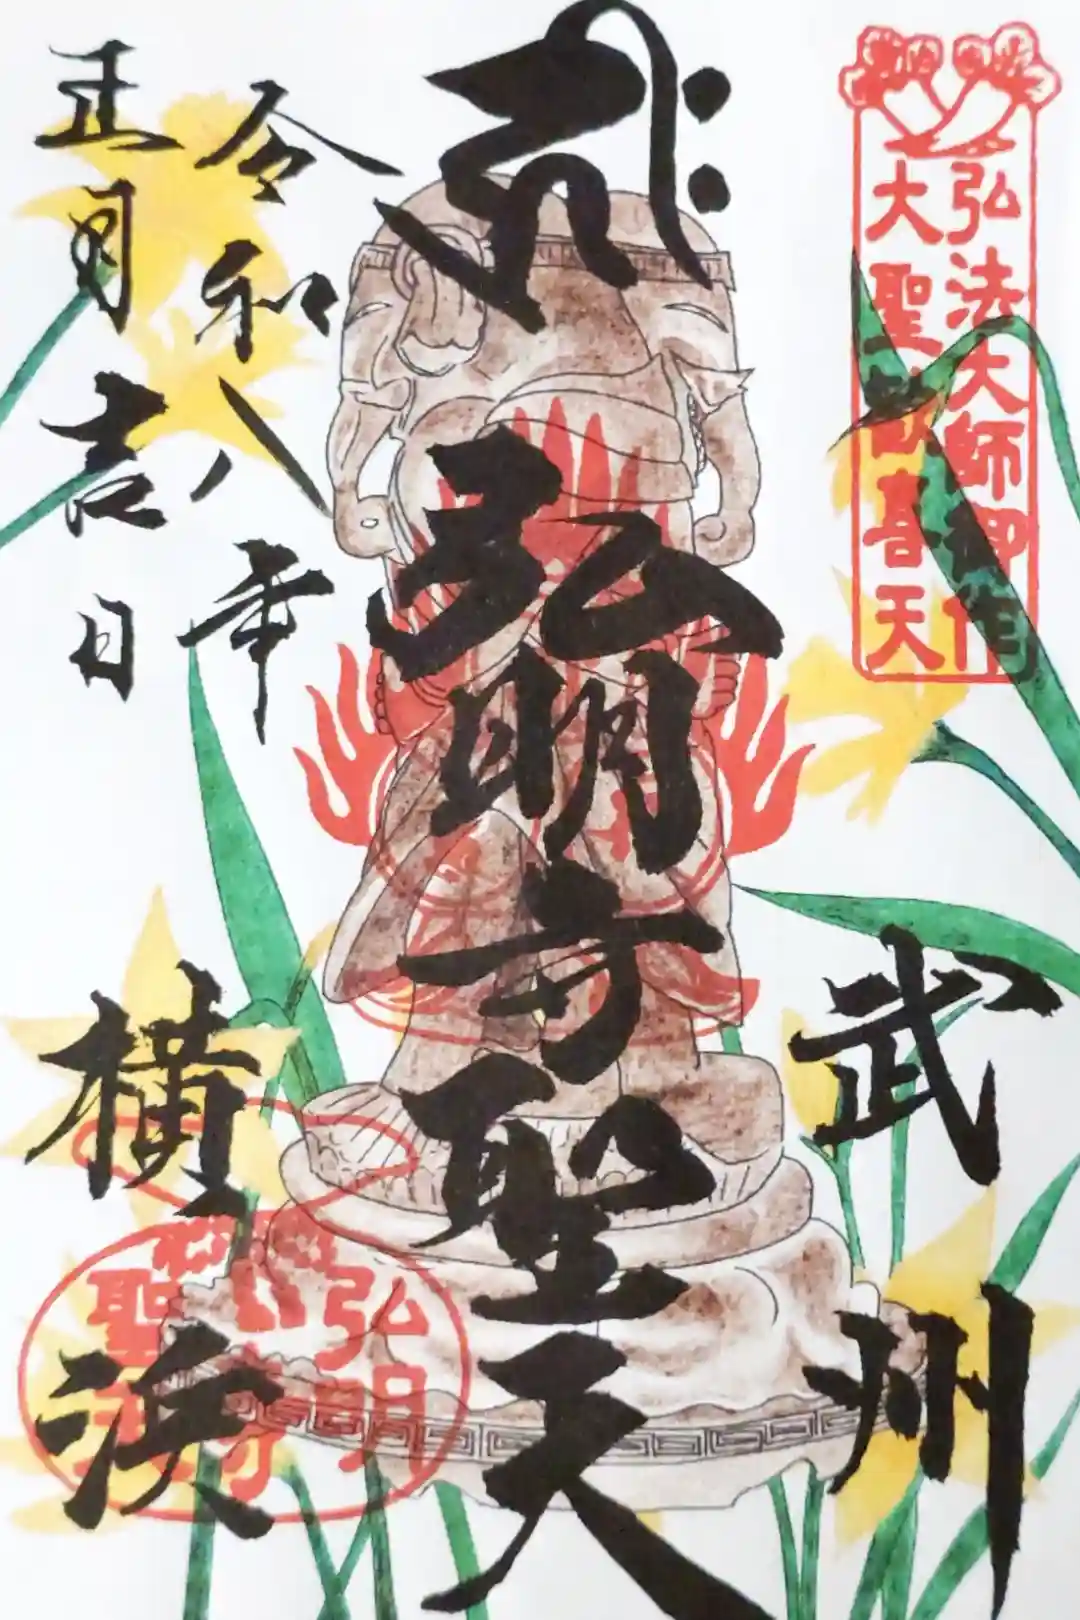 弘法大師御作
大聖歓喜天
武州
弘明寺聖天
令和八年
正月吉日
横浜
弘明
聖天